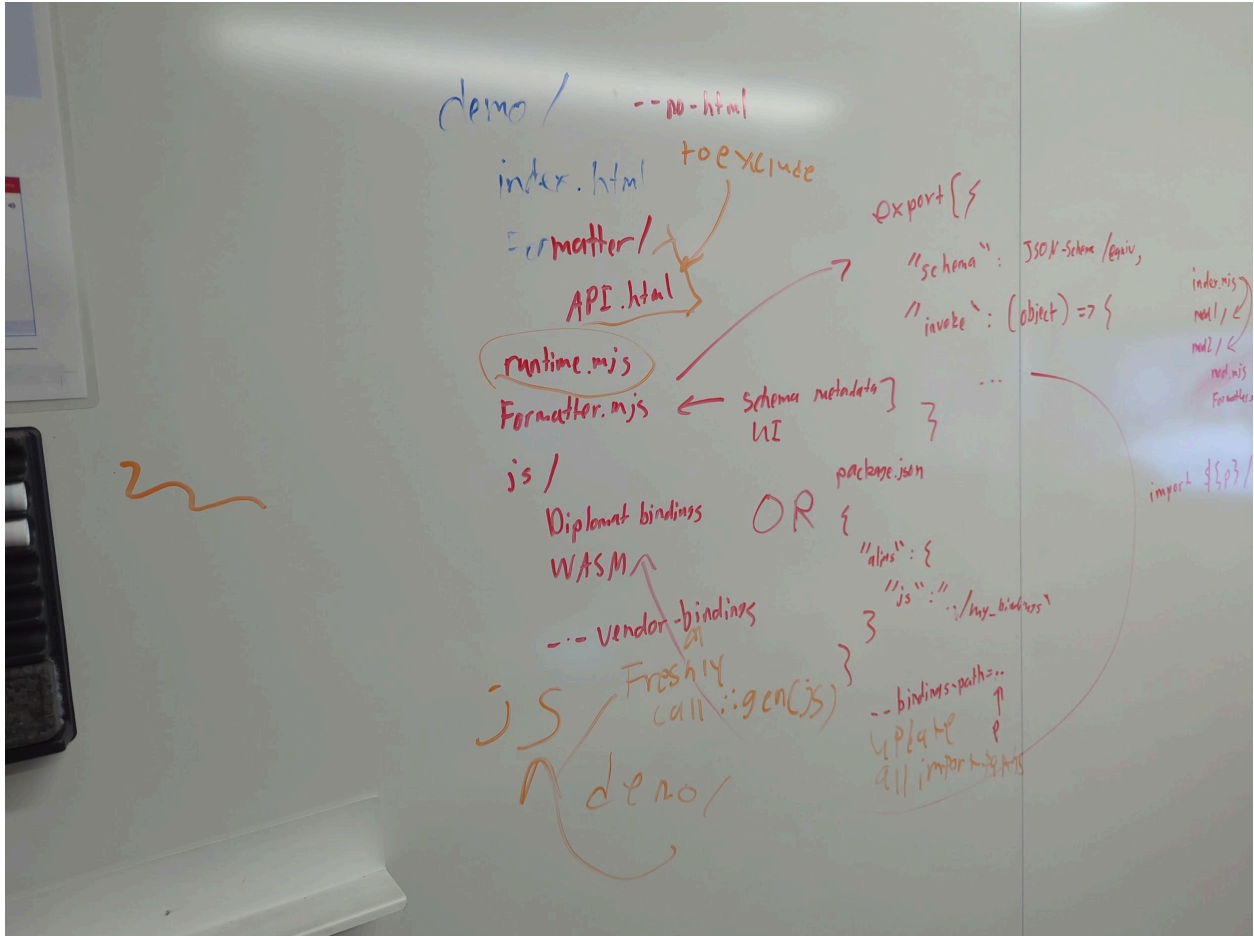 demo/
--no-html
to exclude
index.html
Formatter/
API.html
runtime.mjs
Formatter.mjs
schema metadata
UI
js/
Diplomat bindings
WASM
--vendor-bindings
Freshly
call ::gen(js)
js
demo/
export {{
"schema": JSON-Schema/equiv,
"invoke": (object) => {
...
}
OR
package.json
{
"alias": {
"js": "../my_bindings"
}
}
--bindings-path=..
p
update
all import
index.mjs
mod1/
mod2/
mod.mjs
import {{p}}/